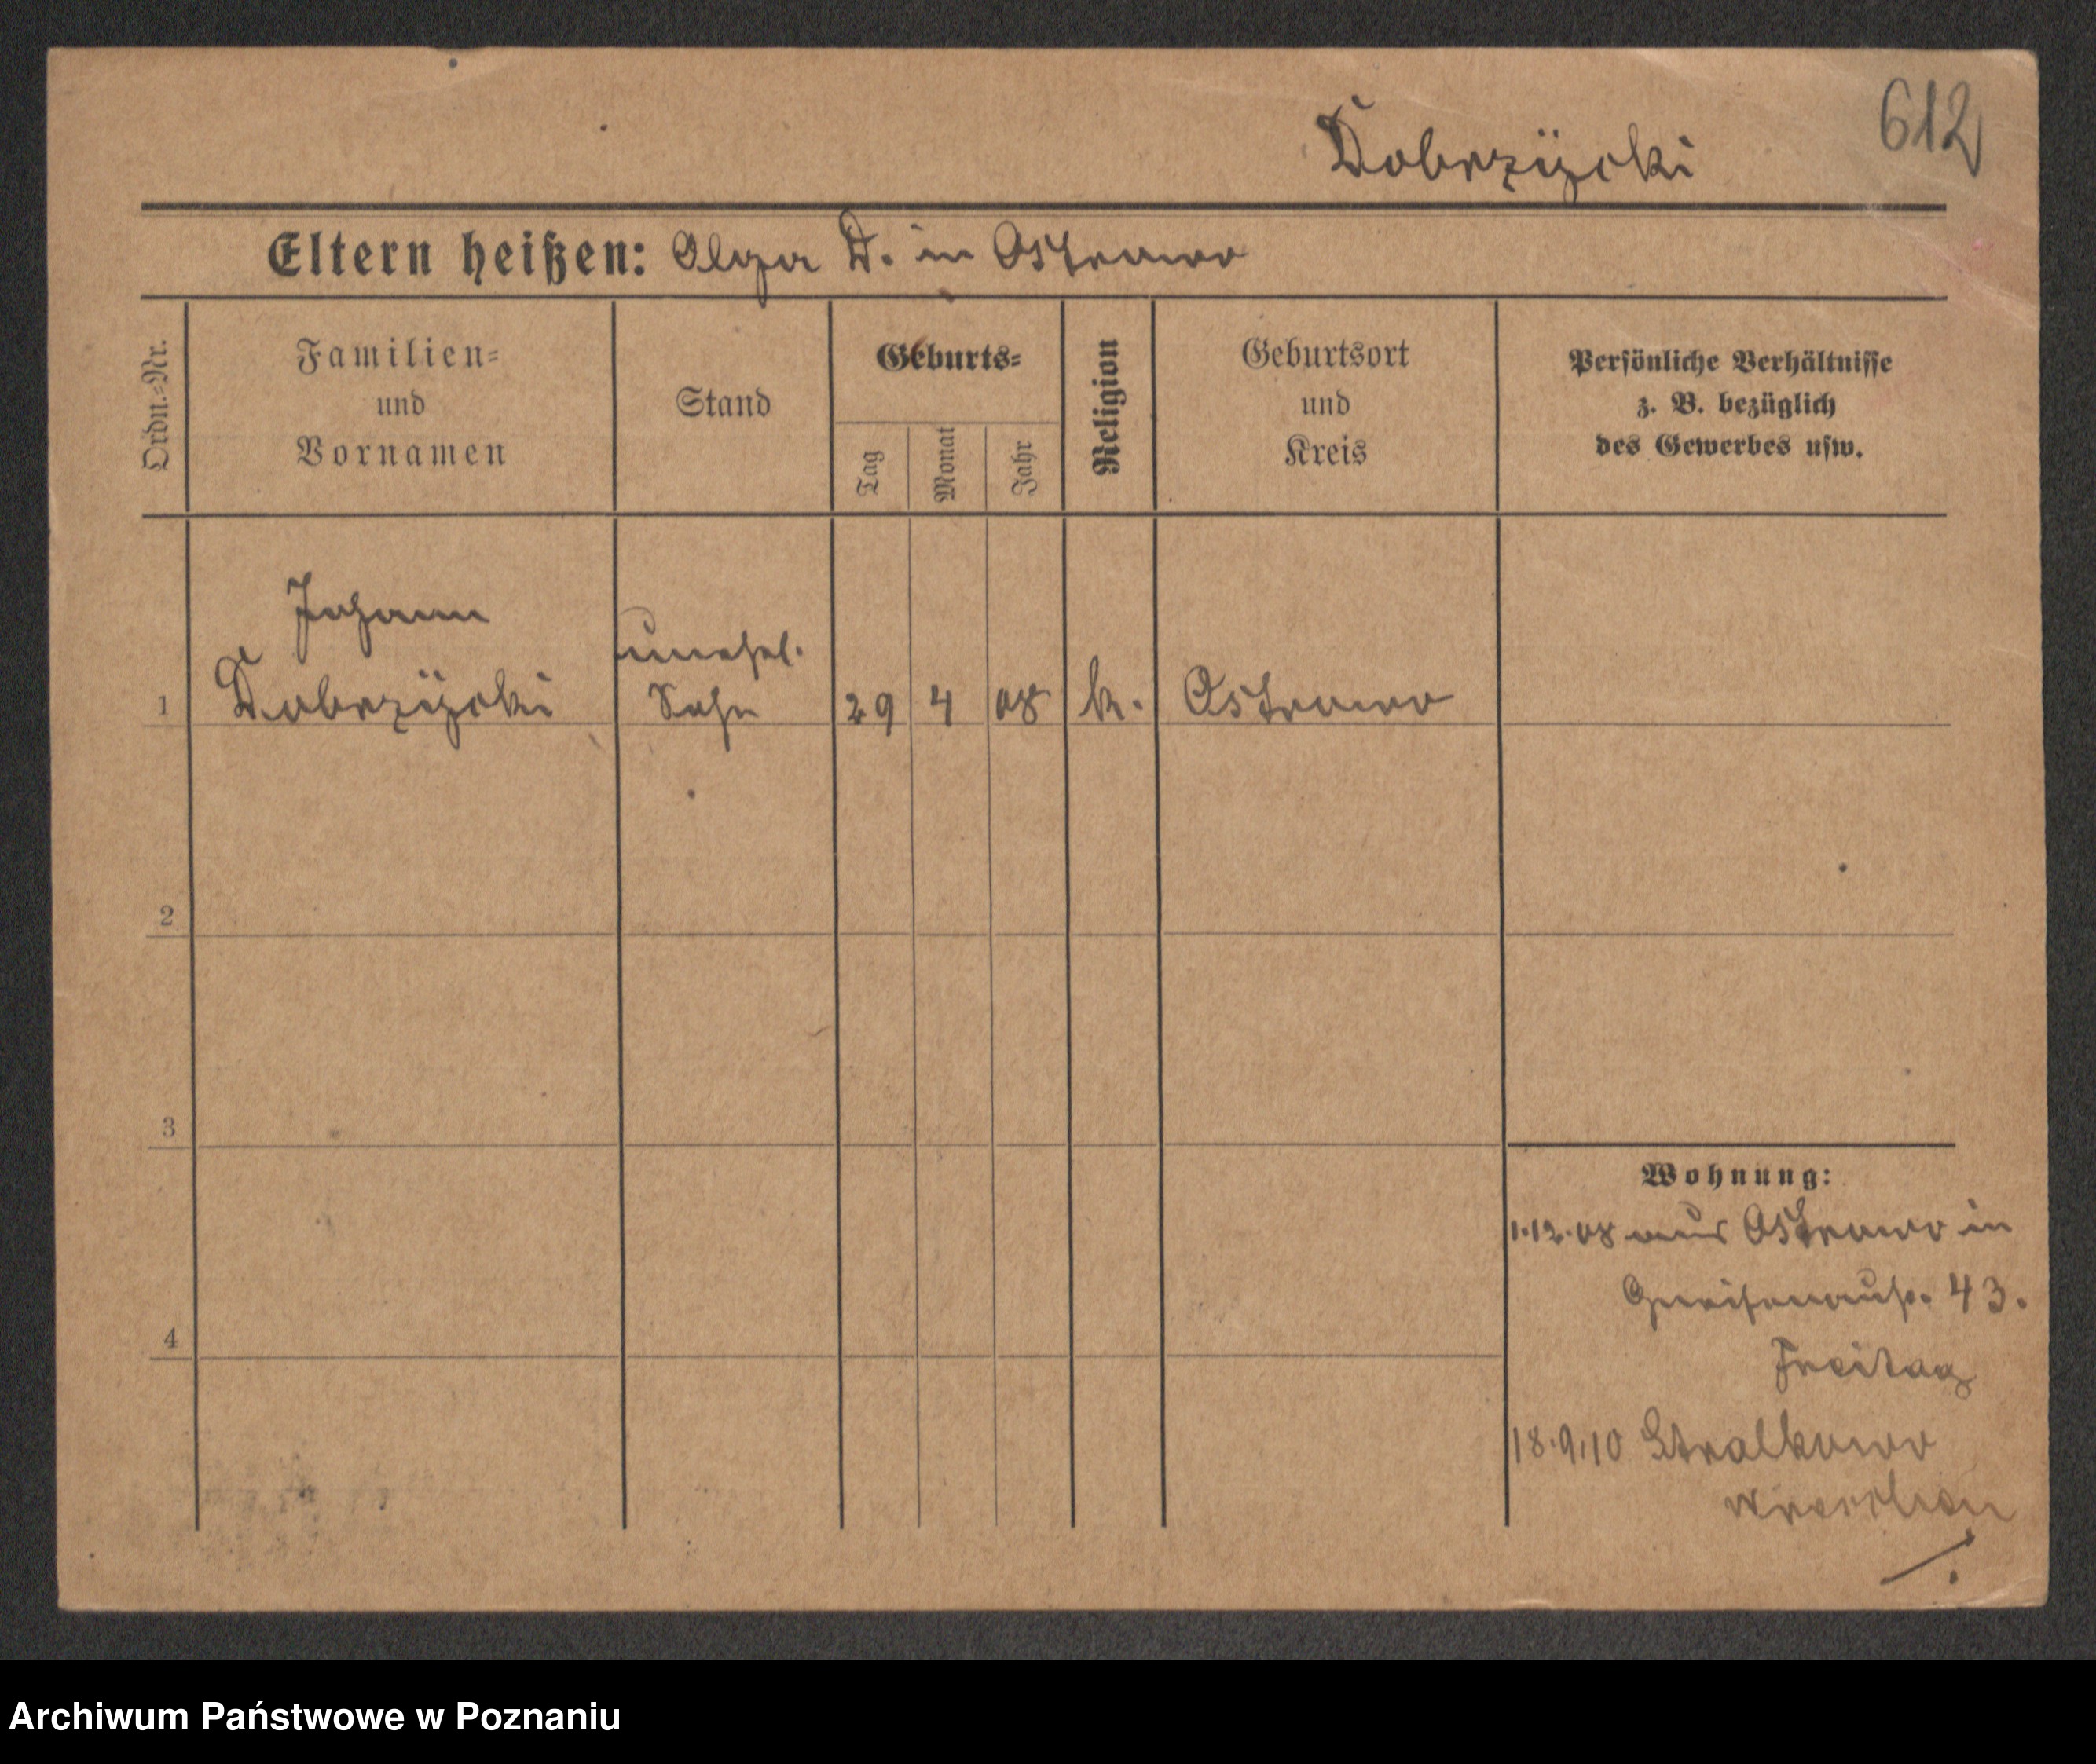 612
Dobrzÿcki
Eltern heißen: Olga D. in Ostrowo
Ordn.=Nr.
Familien=
und
Vornamen
Stand
Geburts=
Tag
Monat
Jahr
Religion
Geburtsort
und
Kreis
Persönliche Verhältnisse
z. B. bezüglich
des Gewerbes usw.
1
Johann
Dobrzÿcki
unehel.
Sohn
29
4
08
k.
Ostrowo
2
3
4
Wohnung:
1.12.08 aus Ostrowo in
Gneisenaustr. 43.
Freitag
18.9.10 Stralkowo
Wreschen
Archiwum Państwowe w Poznaniu